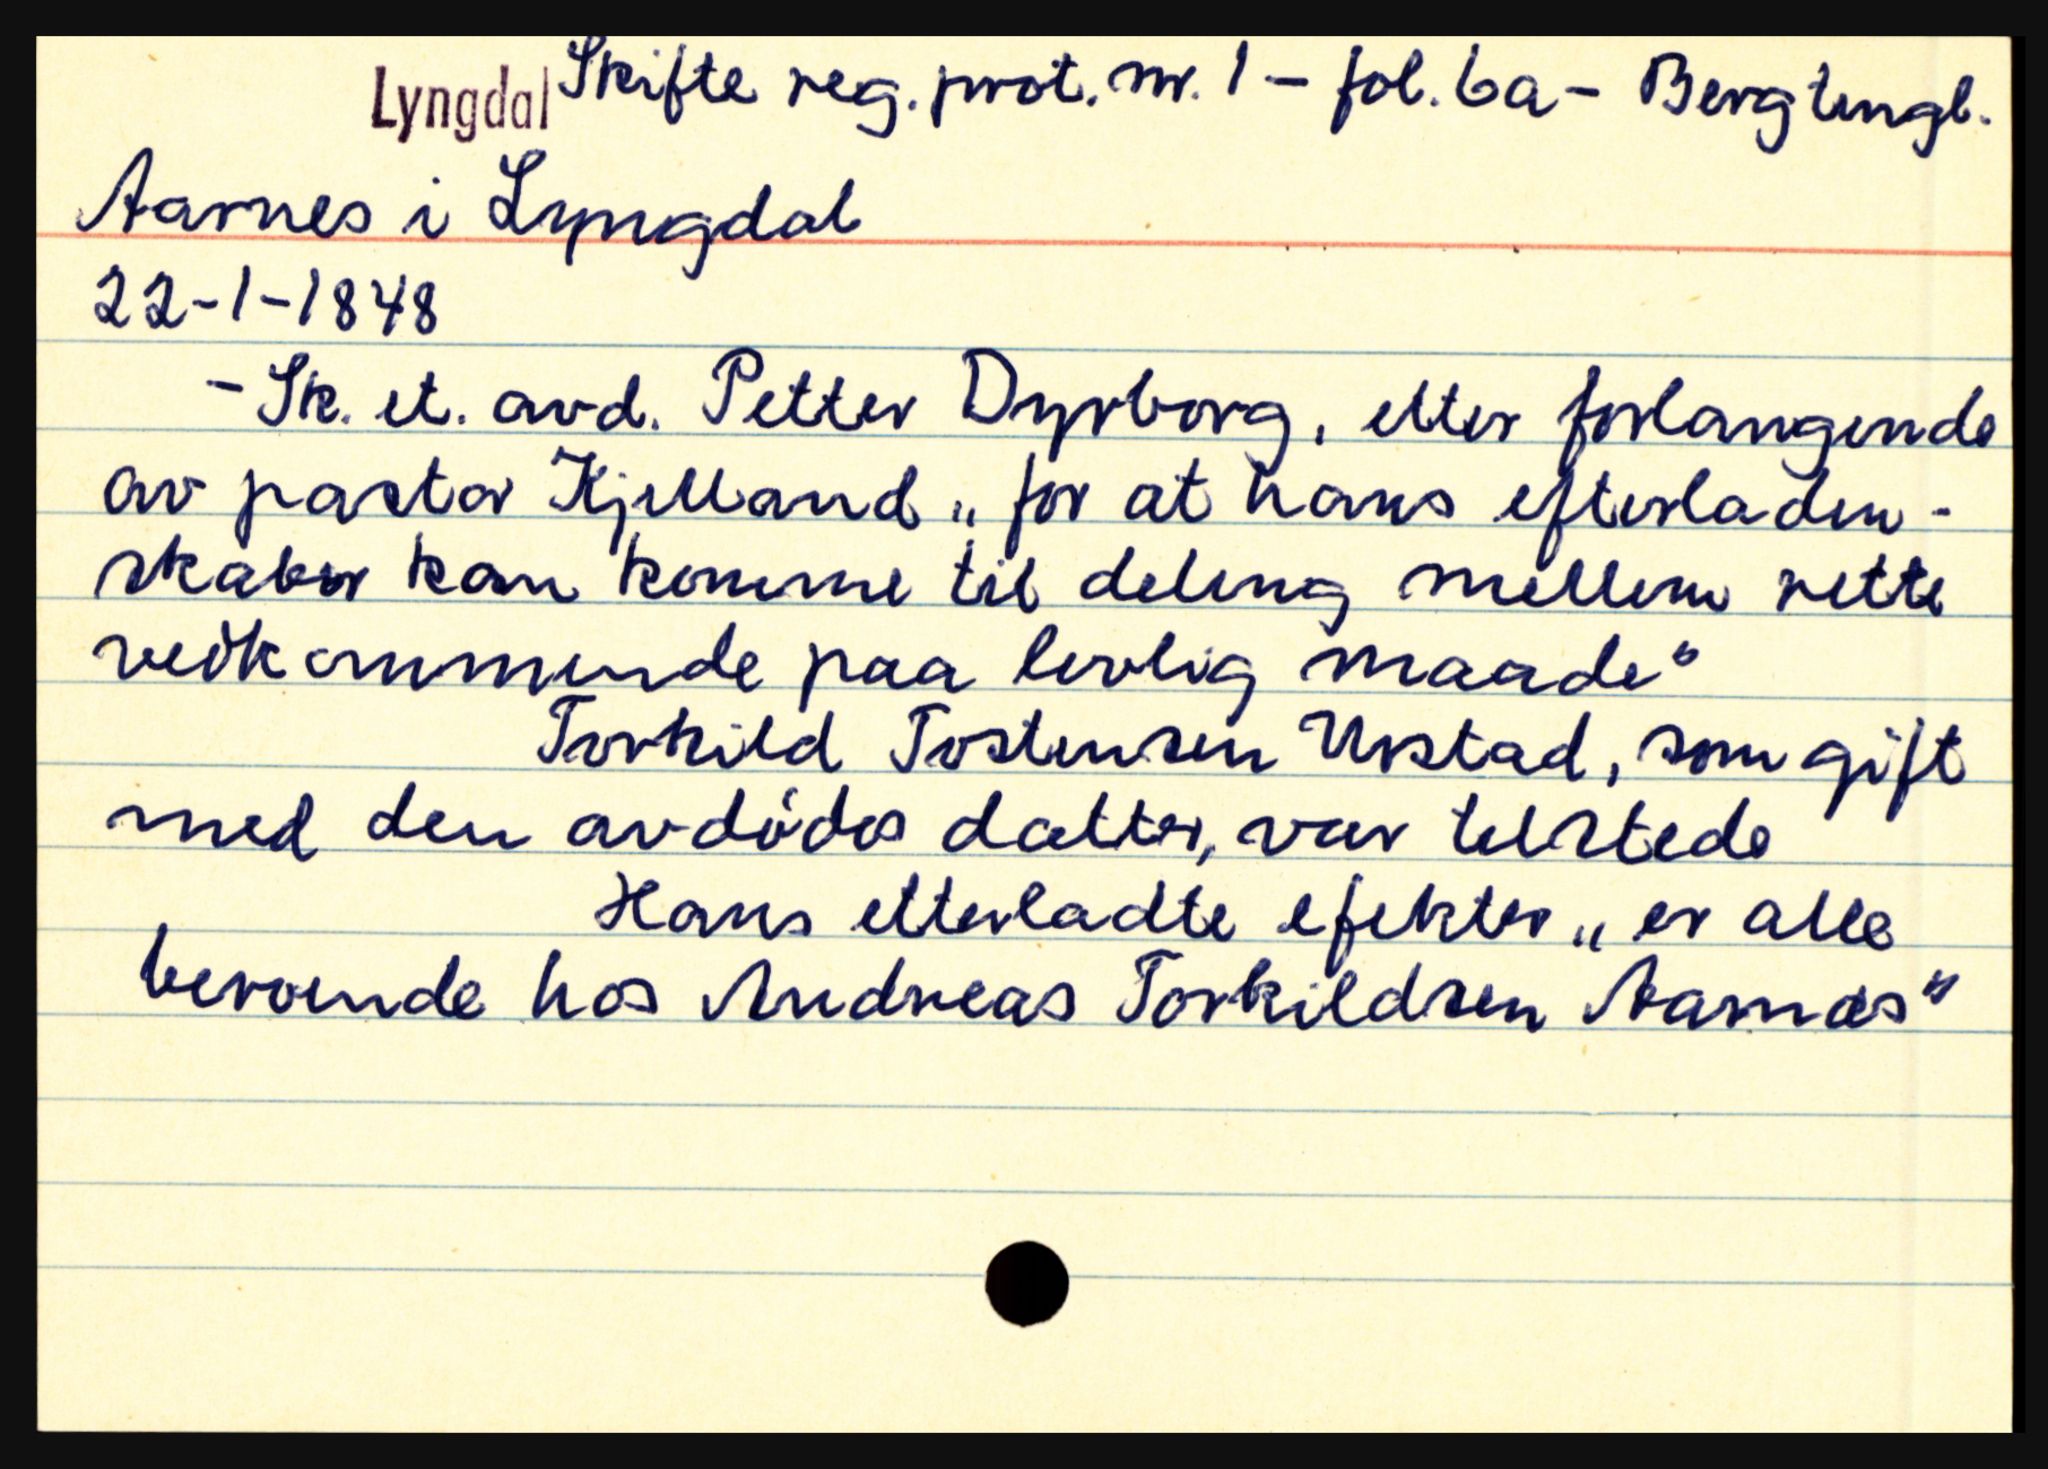 Lyngdal Skifte reg. prot. nr. 1 - fol. 6a - Berg tingl.
Aarnes i Lyngdal
22-1-1848
- Sk. et. avd. Petter Dyrborg, etter forlangende
av pastor Kjelland „for at hans efterladen-
skaber kan komme til deling mellem rette
vedkommende paa lovlig maade"
Torkild Tostensen Urstad, som gift
med den avdødes datter, var tilstede
Hans etterladte efekter „er alle
beroende hos Andreas Torkildsen Aarnæs"